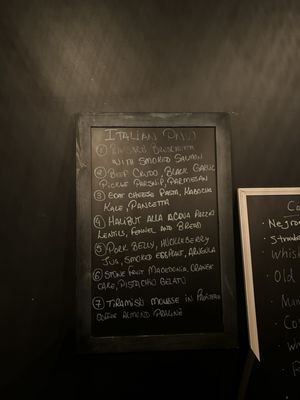 Italian
① Rhubarb Bruschetta
with Smoked Salmon
② Beef Crudo, Black Garlic
Pickle Parsnip, Parmesan
③ Goat Cheese Pasta, Kabocha
Kale, Pancetta
④ Halibut alla Acqua Pazza
Lentils, Fennel and Bread
⑤ Pork Belly, Huckleberry
Jus, Smoked Eggplant, Arugula
⑥ Stone Fruit Macedonia, Orange
Cake, Pistachio Gelato
⑦ Tiramisu Mousse in
Coffee Almond Praliné
Co
· Negro
Whisk
Old
Ma
Co
Wh